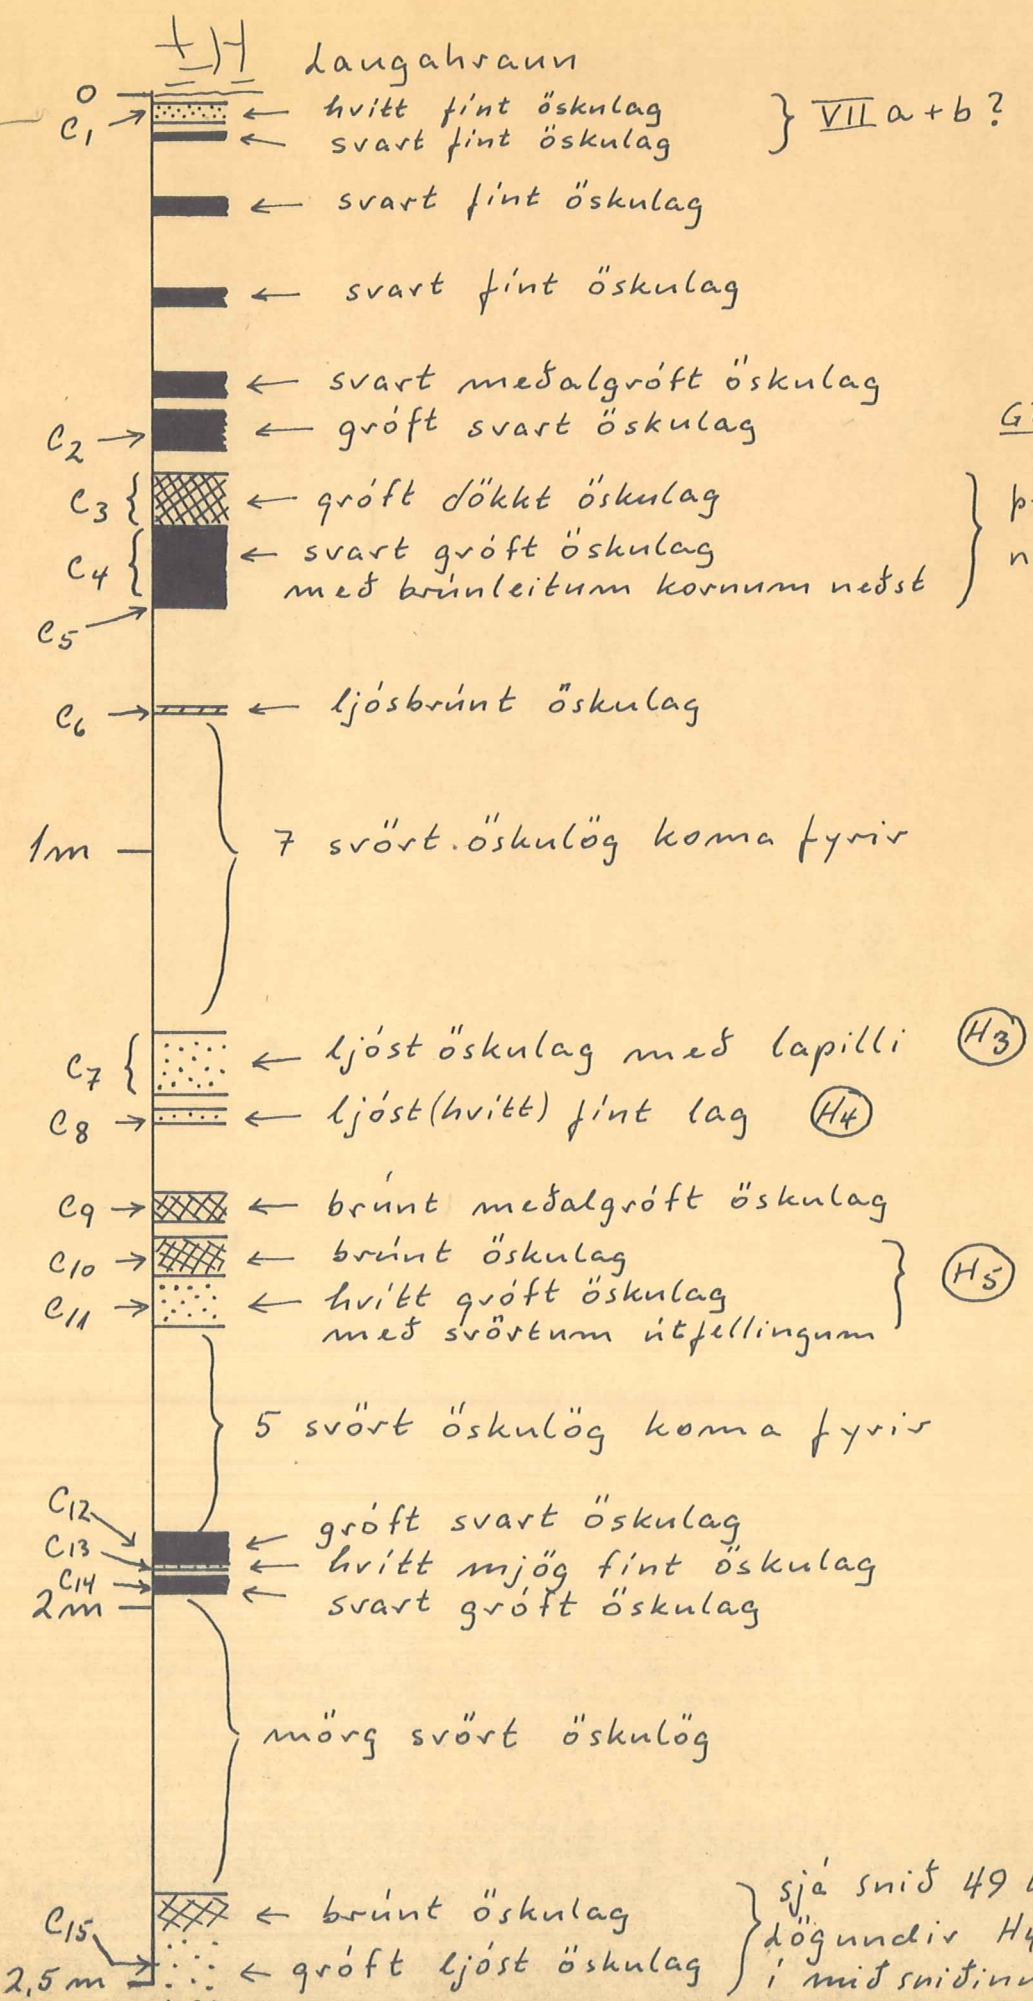 Laugahraun
0
C1 hvítt fínt öskulag
svart fínt öskulag
VII a + b?
svart fínt öskulag
svart fínt öskulag
svart meðalgróft öskulag
C2 gróft svart öskulag
C3 gróft dökkt öskulag
C4 svart gróft öskulag
með brúnleitum kornum neðst
C5
C6 ljósbrúnt öskulag
1m 7 svört öskulög koma fyrir
C7 ljóst öskulag með lapilli H3
C8 ljóst (hvítt) fínt lag H4
C9 brúnt meðalgróft öskulag
C10 brúnt öskulag
H5
C11 hvítt gróft öskulag
með svörtum útfellingum
5 svört öskulög koma fyrir
C12 gróft svart öskulag
C13 hvítt mjög fínt öskulag
C14 svart gróft öskulag
2m
mörg svört öskulög
C15 brúnt öskulag
2,5m gróft ljóst öskulag
sjá snið 49
Lögundir
í mið